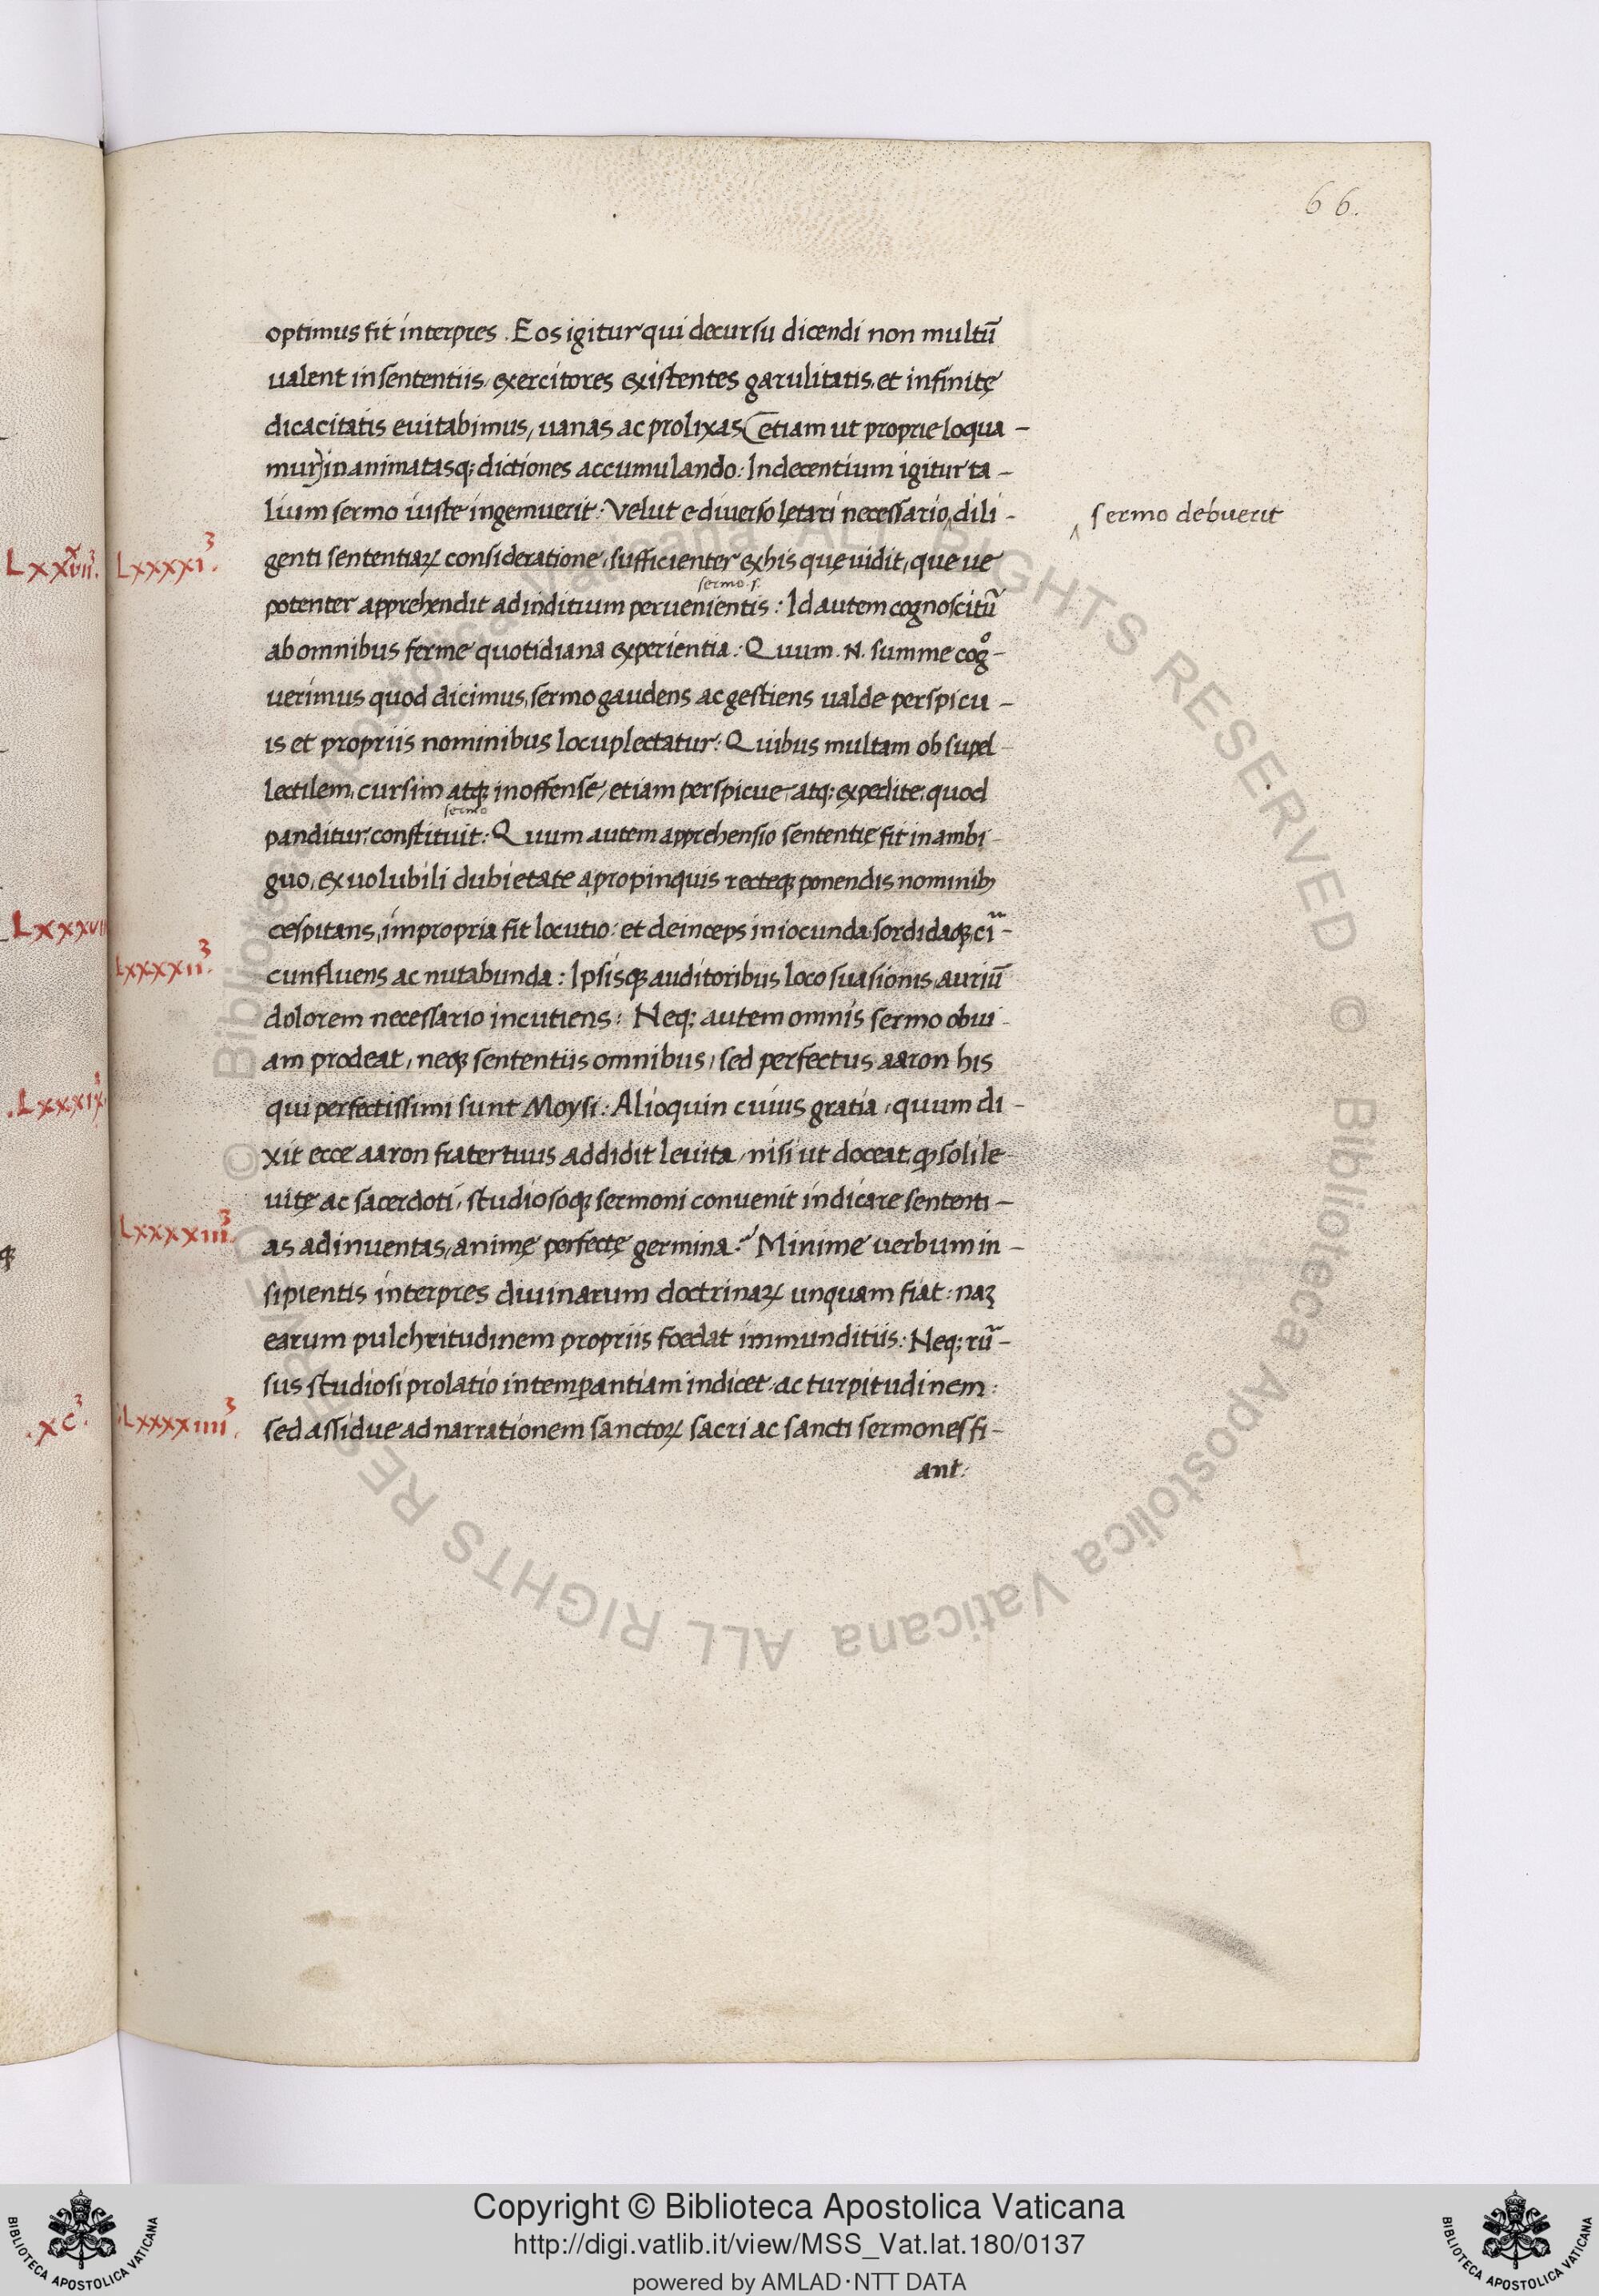 66.
optimus fit interpres. Eos igitur qui decursu dicendi non multū
ualent in sententiis, exercitores existentes garulitatis, et infinitę
dicacitatis euitabimus, uanas ac prolixas (etiam ut proprie loqua-
mur) inanimatasq; dictiones accumulando: Indecentium igitur ta-
lium sermo iuste ingemuerit: Velut e diuerso lętari necessario ‸ dili-
‸ sermo debuerit
LxxXvii³. Lxxxxi³.
genti sententiaꝝ consideratione, sufficienter ex his quę uidit, que ue
sermo .s.
potenter apprehendit ad inditium peruenientis: Id autem cognoscitū
ab omnibus ferme quotidiana experientia: Quum .N. summe cog̊-
uerimus quod dicimus, sermo gaudens ac gestiens ualde perspicu-
is et propriis nominibus locuplectatur: Quibus multam ob supel-
lectilem, cursim atqꝫ inoffense, etiam perspicue, atq; expedite, quod
sermo
panditur, constituit: Quum autem apprehensio sententię fit in ambi-
guo, ex uolubili dubietate a propinquis recteqꝫ ponendis nominibꝫ
Lxxxvii
cespitans, impropria fit locutio: et deinceps iniocunda sordidaqꝫ ci᷑-
Lxxxxii³.
cunfluens ac nutabunda: Ipsisqꝫ auditoribus loco suasionis, auriū
dolorem necessario incutiens: Neq; autem omnis sermo obui-
am prodeat, neqꝫ sententiis omnibus, sed perfectus aaron his
.Lxxxix³.
qui perfectissimi sunt Moysi: Alioquin cuius gratia, quum di-
xit ecce aaron frater tuus addidit leuita, nisi ut doceat, ꝙ soli le-
uitę ac sacerdoti, studiosoqꝫ sermoni conuenit indicare sententi-
Lxxxxiii³.
as adinuentas, animę perfectę germina? Minime uerbum in-
sipientis interpres diuinarum doctrinaꝝ unquam fiat: naꝫ
earum pulchritudinem propriis foedat immunditiis: Neq; rū-
sus studiosi prolatio intemꝑantiam indicet, ac turpitudinem:
.xc³. .Lxxxxiiii³.
sed assidue ad narrationem sanctoꝝ sacri ac sancti sermones fi-
ant:
Copyright © Biblioteca Apostolica Vaticana
http://digi.vatlib.it/view/MSS_Vat.lat.180/0137
powered by AMLAD·NTT DATA
BIBLIOTECA APOSTOLICA VATICANA
BIBLIOTECA APOSTOLICA VATICANA
© Biblioteca Apostolica Vaticana ALL RIGHTS RESERVED © Biblioteca Apostolica Vaticana ALL RIGHTS RESERVED